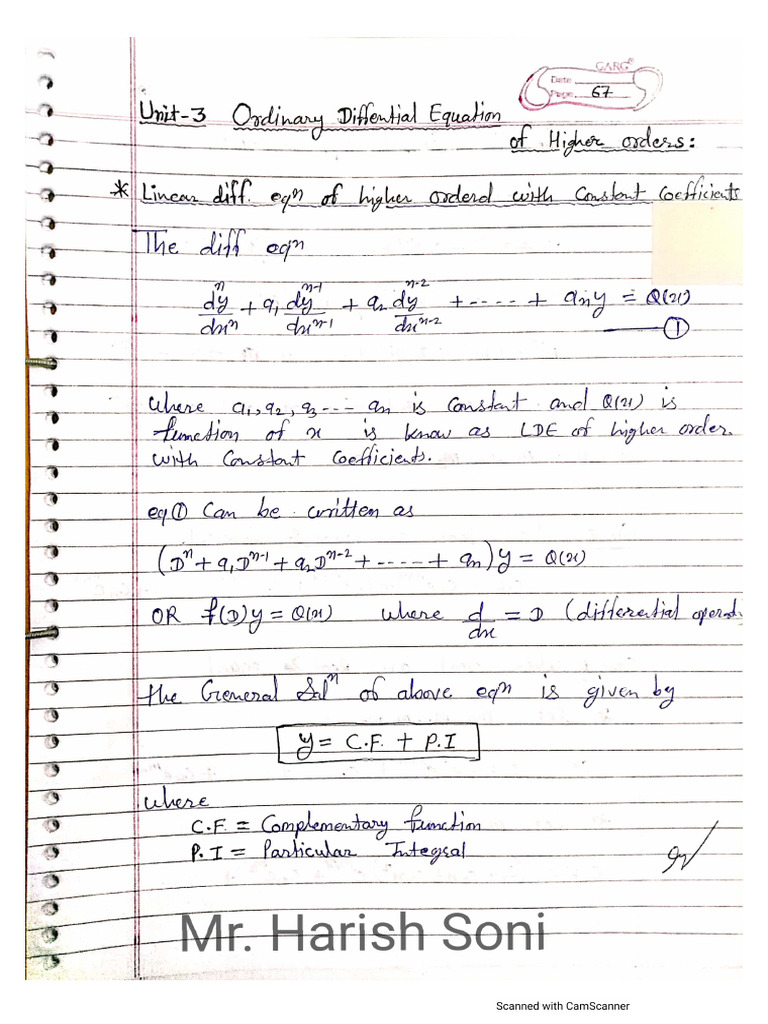 GARG
Date
Page 67
Unit-3 Ordinary Diffential Equation
of Higher orders:
* Linear diff. eqn of higher orderd with Constant Coefficients
The diff eqn
dⁿy/dxⁿ + a₁ dⁿ⁻¹y/dxⁿ⁻¹ + a₂ dⁿ⁻²y/dxⁿ⁻² + ---- + aₙy = Q(x)
——— ①
where a₁, a₂, a₃ --- aₙ is constant and Q(x) is
function of x is know as LDE of higher order
with Constant Coefficients.
eq① Can be written as
(Dⁿ + a₁Dⁿ⁻¹ + a₂Dⁿ⁻² + ----- + aₙ)y = Q(x)
OR f(D)y = Q(x) where d/dx = D (differential operat.
the General Solⁿ of above eqn is given by
y = C.F. + P.I
where
C.F. = Complementary function
P.I = Particular Integral
Mr. Harish Soni
Scanned with CamScanner